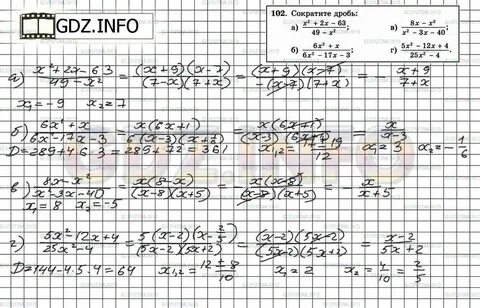 GDZ.INFO
102. Сократите дробь:
а) (x² + 2x - 63)/(49 - x²);
в) (8x - x²)/(x² - 3x - 40);
б) (6x² + x)/(6x² - 17x - 3);
г) (5x² - 12x + 4)/(25x² - 4).
а) (x²+2x-63)/(49-x²) = ((x+9)(x-7))/((7-x)(7+x)) = ((x+9)(x-7))/(-(x-7)(7+x)) = -(x+9)/(7+x)
x₁=-9 x₂=7
б) (6x²+x)/(6x²-17x-3) = (x(6x+1))/(6(x-3)(x+1/6)) = (x(6x+1))/((x-3)(6x+1)) = x/(x-3)
D=289+4·6·3=289+72=361 x₁,₂=(17±19)/12 x₁=3 x₂=-1/6
в) (8x-x²)/(x²-3x-40) = (x(8-x))/((x-8)(x+5)) = -(x(x-8))/((x-8)(x+5)) = -x/(x+5)
x₁=8 x₂=-5
г) (5x²-12x+4)/(25x²-4) = (5(x-2)(x-2/5))/((5x-2)(5x+2)) = ((x-2)(5x-2))/((5x-2)(5x+2)) = (x-2)/(5x+2)
D=144-4·5·4=64 x₁,₂=(12±8)/10 x₁=2 x₂=4/10=2/5